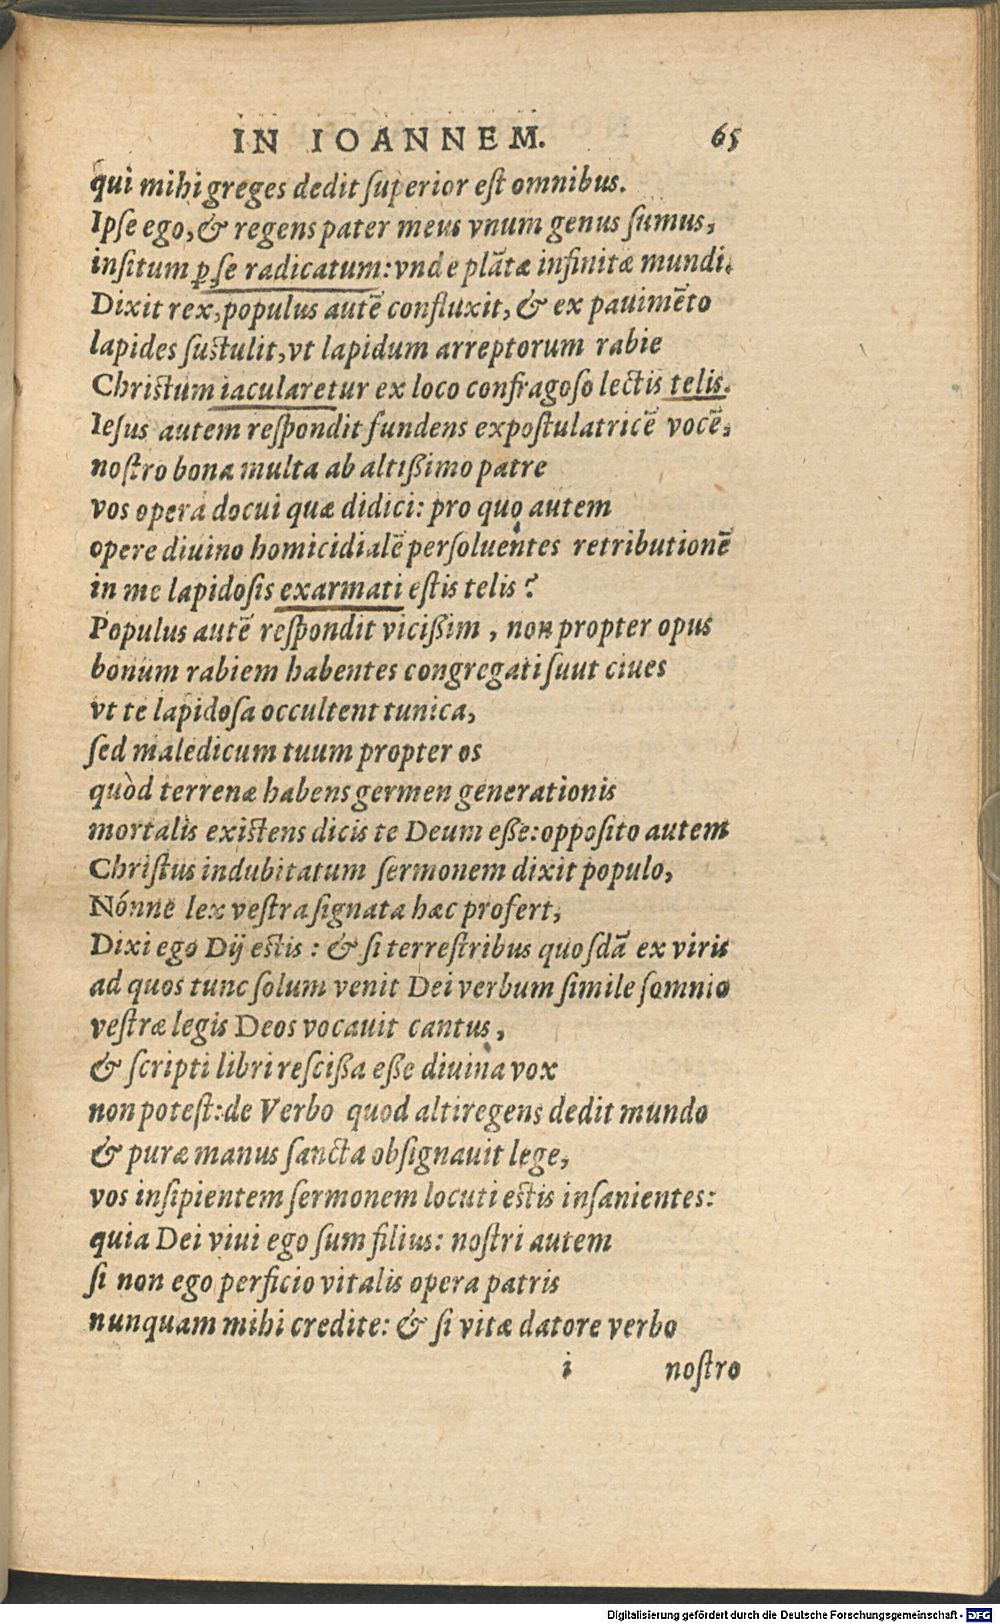 IN IOANNEM. 65
qui mihi greges dedit ſuperior eſt omnibus.
Ipſe ego, & regens pater meus vnum genus ſumus,
inſitum p̲ ſe radicatum: vnde plātæ infinitæ mundi.
Dixit rex, populus autē confluxit, & ex pauimēto
lapides ſustulit, vt lapidum arreptorum rabie
Chriſtum iacularetur ex loco confragoſo lectis telis.
Ieſus autem reſpondit fundens expoſtulatricē vocē,
noſtro bona multa ab altißimo patre
vos opera docui quæ didici: pro quo autem
opere diuino homicidialē perſoluentes retributionē
in me lapidoſis exarmati eſtis telis?
Populus autē reſpondit vicißim, non propter opus
bonum rabiem habentes congregati ſuut ciues
vt te lapidoſa occultent tunica,
ſed maledicum tuum propter os
quòd terrenæ habens germen generationis
mortalis exiſtens dicis te Deum eße: oppoſito autem
Chriſtus indubitatum ſermonem dixit populo,
Nónne lex veſtra ſignata hæc profert,
Dixi ego Dij eſtis: & ſi terreſtribus quoſdā ex viris
ad quos tunc ſolum venit Dei verbum ſimile ſomnio
veſtræ legis Deos vocauit cantus,
& ſcripti libri reſcißa eße diuina vox
non poteſt: de Verbo quod altiregens dedit mundo
& puræ manus ſancta obſignauit lege,
vos inſipientem ſermonem locuti eſtis inſanientes:
quia Dei viui ego ſum filius: noſtri autem
ſi non ego perficio vitalis opera patris
nunquam mihi credite: & ſi vitæ datore verbo
i noſtro
Digitalisierung gefördert durch die Deutsche Forschungsgemeinschaft - DFG